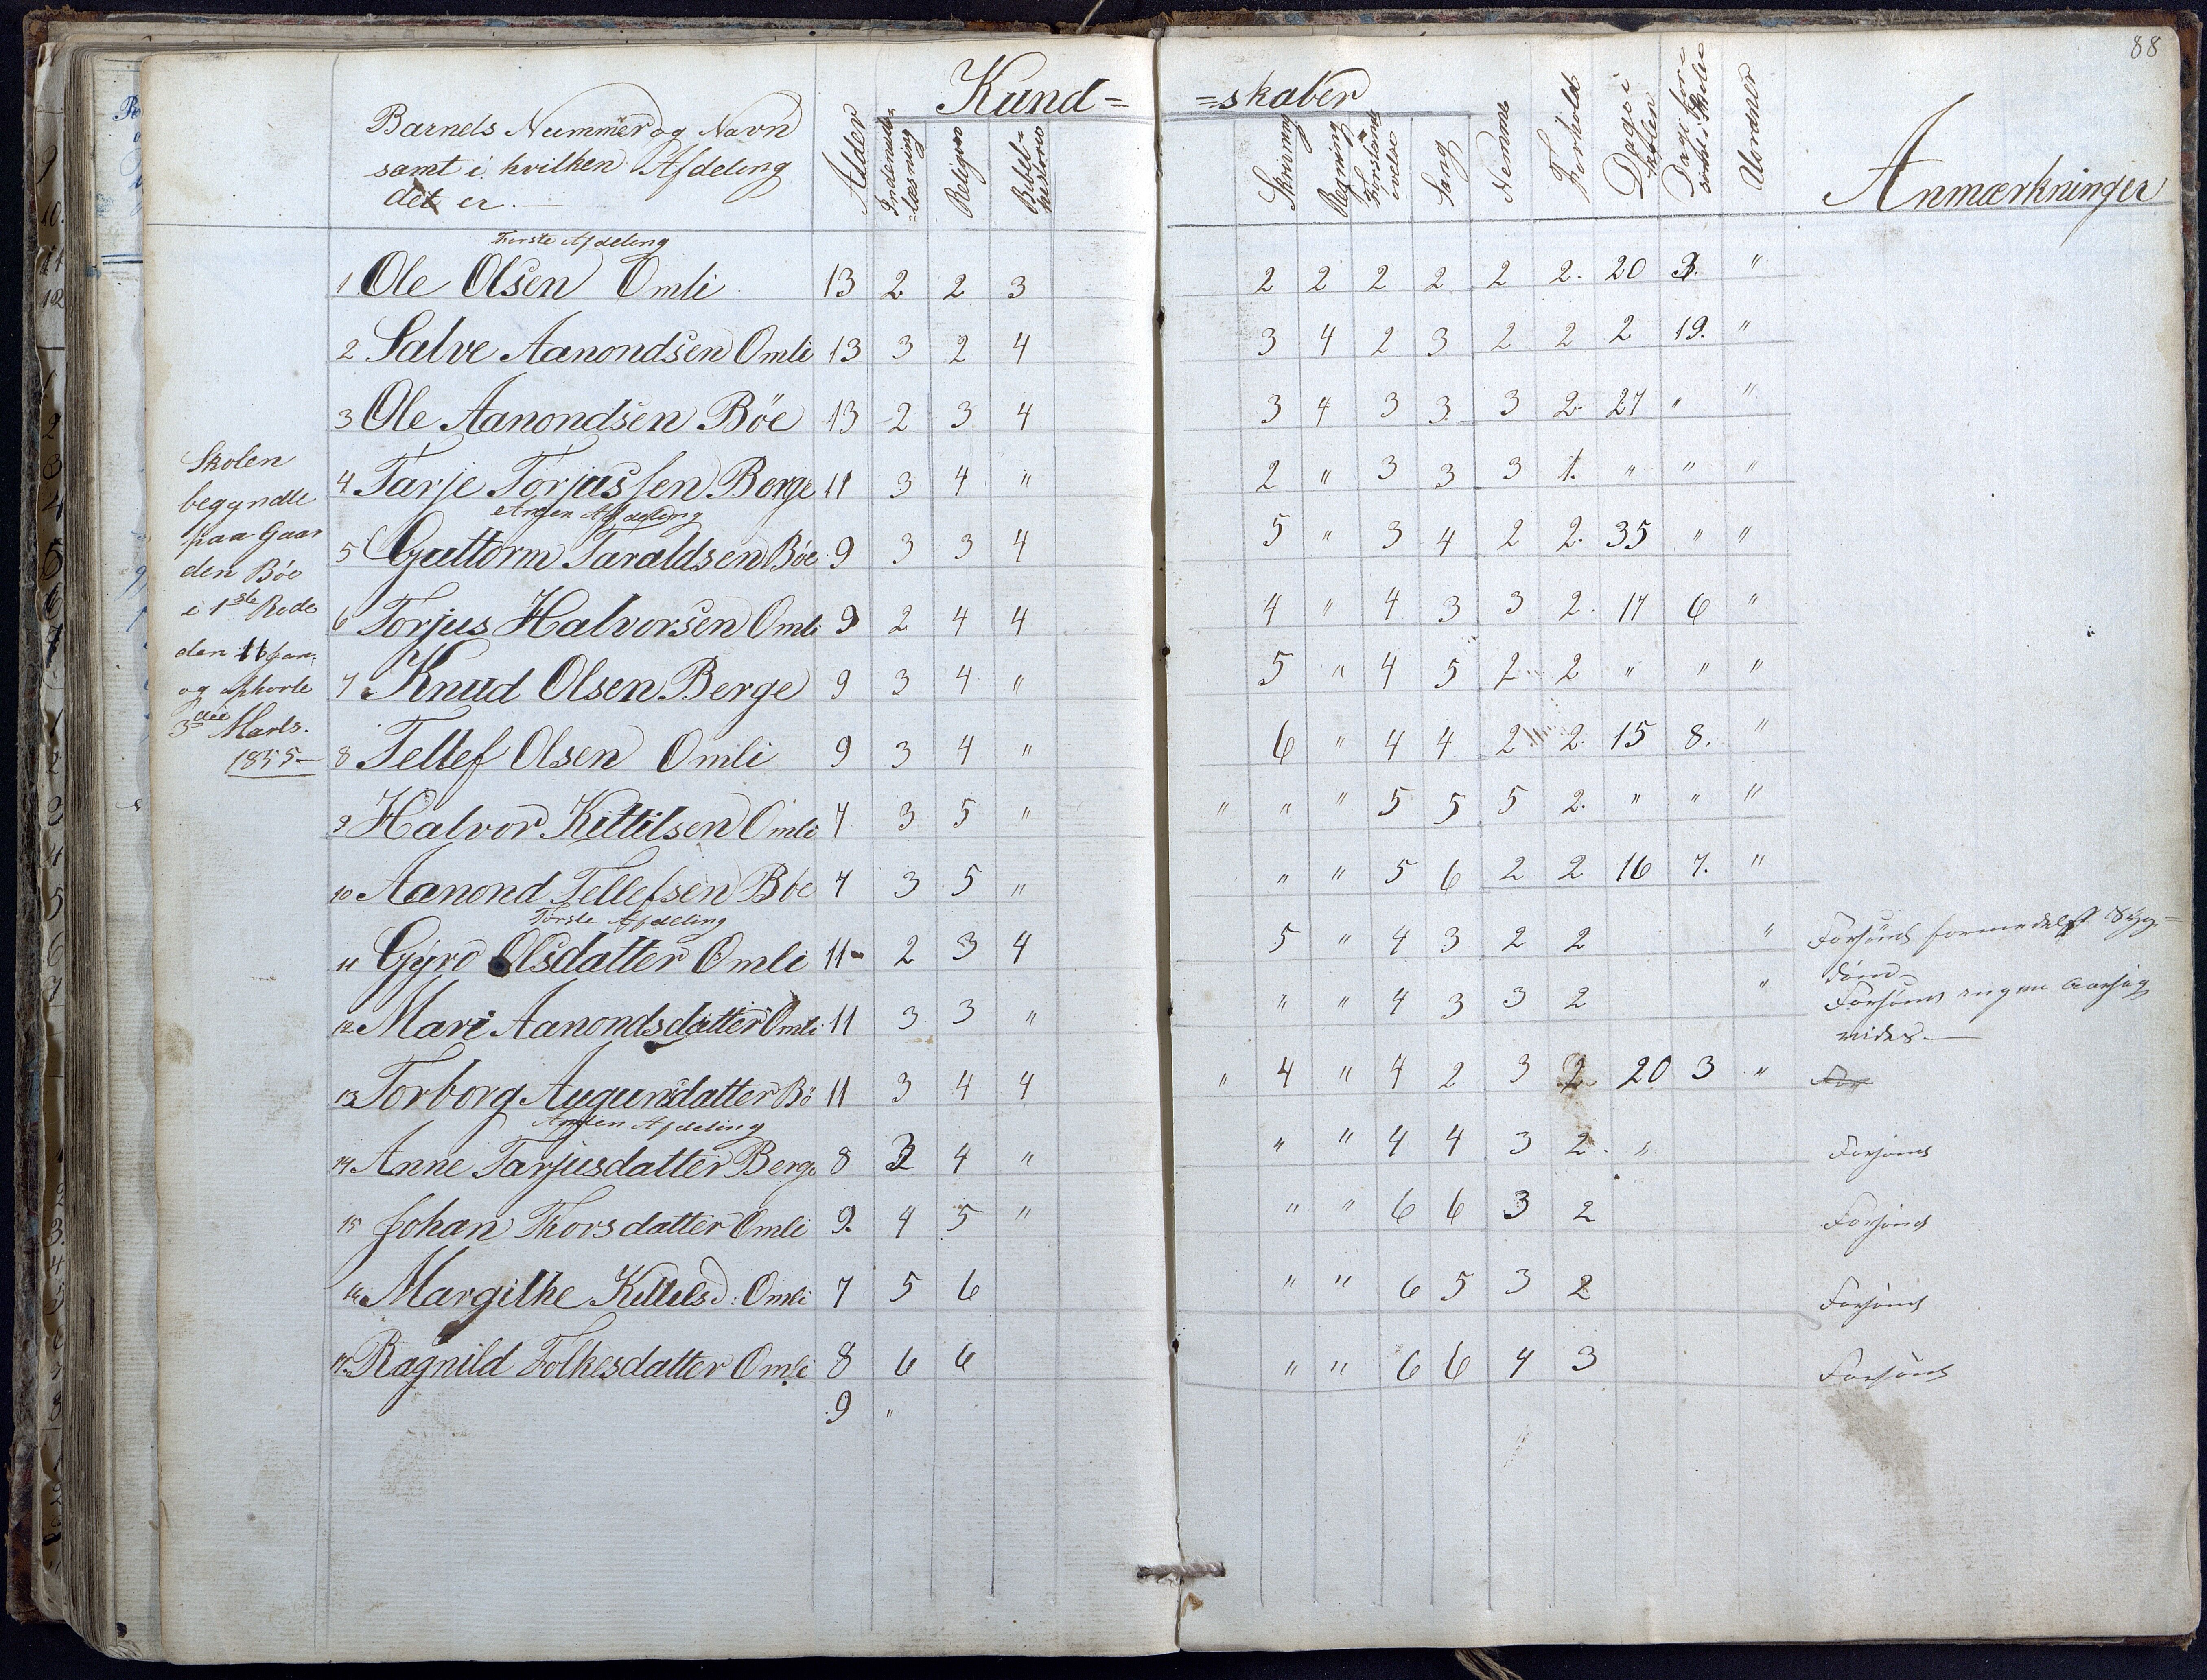 88
Kund= =skaber
Barnets Nummer og Navn
samt i hvilken Afdeling
det er.—
Alder
Indenads=
læsning
Religion
Bibel=
historie
Skrivning
Regning
Forstands
øvelse
Sang
Nemme
Forhold
Dage i
Skolen
Dage for=
sømt i Skolen
Uordner
Anmærkninger
Første Afdeling
1 Ole Olsen Omli 13 2 2 3 2 2 2 2 2 2. 20 3. "
2 Salve Aanondsen Omli 13 3 2 4 3 4 2 3 2 2 2 19. "
3 Ole Aanondsen Böe 13 2 3 4 3 4 3 3 3 2 27 " "
4 Tarje Torjussen Berge 11 3 4 " 2 " 3 3 3 1. " " "
Anden Afdeling
5 Guttorm Taraldsen Böe 9 3 3 4 5 " 3 4 2 2. 35 " "
6 Torjus Halvorsen Omli 9 2 4 4 4 " 4 3 3 2. 17 6 "
7 Knud Olsen Berge 9 3 4 " 5 " 4 5 2 2 " " "
8 Tellef Olsen Omli 9 3 4 " 6 " 4 4 2 2. 15 8. "
9 Halvor Kittilsen Omli 7 3 5 " " " " 5 5 5 2. " " "
10 Aanond Tellefsen Böe 7 3 5 " " " 5 6 2 2 16 7. "
Første Afdeling
11 Gyro Olsdatter Omli 11 2 3 4 5 " 4 3 2 2 " Forsømt formedelst Syg=
dom
12 Mari Aanondsdatter Omli 11 3 3 " " " 4 3 3 2 " Forsømt ingen Aarsag
vides.—
13 Torborg Augunsdatter Bö 11 3 4 4 " 4 " 4 2 3 2 20 3 " For
Anden Afdeling
14 Anne Tarjusdatter Berge 8 3 4 " " " 4 4 3 2. " Forsømt
15 Johan Thorsdatter Omli 9. 4 5 " " " 6 6 3 2 Forsømt
16 Margithe Kittelsd: Omli 7 5 6 " " 6 5 3 2 Forsømt
17 Ragnild Folkesdatter Omli 8 6 6 " " 6 6 4 3 Forsømt
9 "
Skolen
begyndte
paa Gaar
den Böe
i 1ste Rode
den 11 Jan.
og ophørte
3die Marts.
1855—